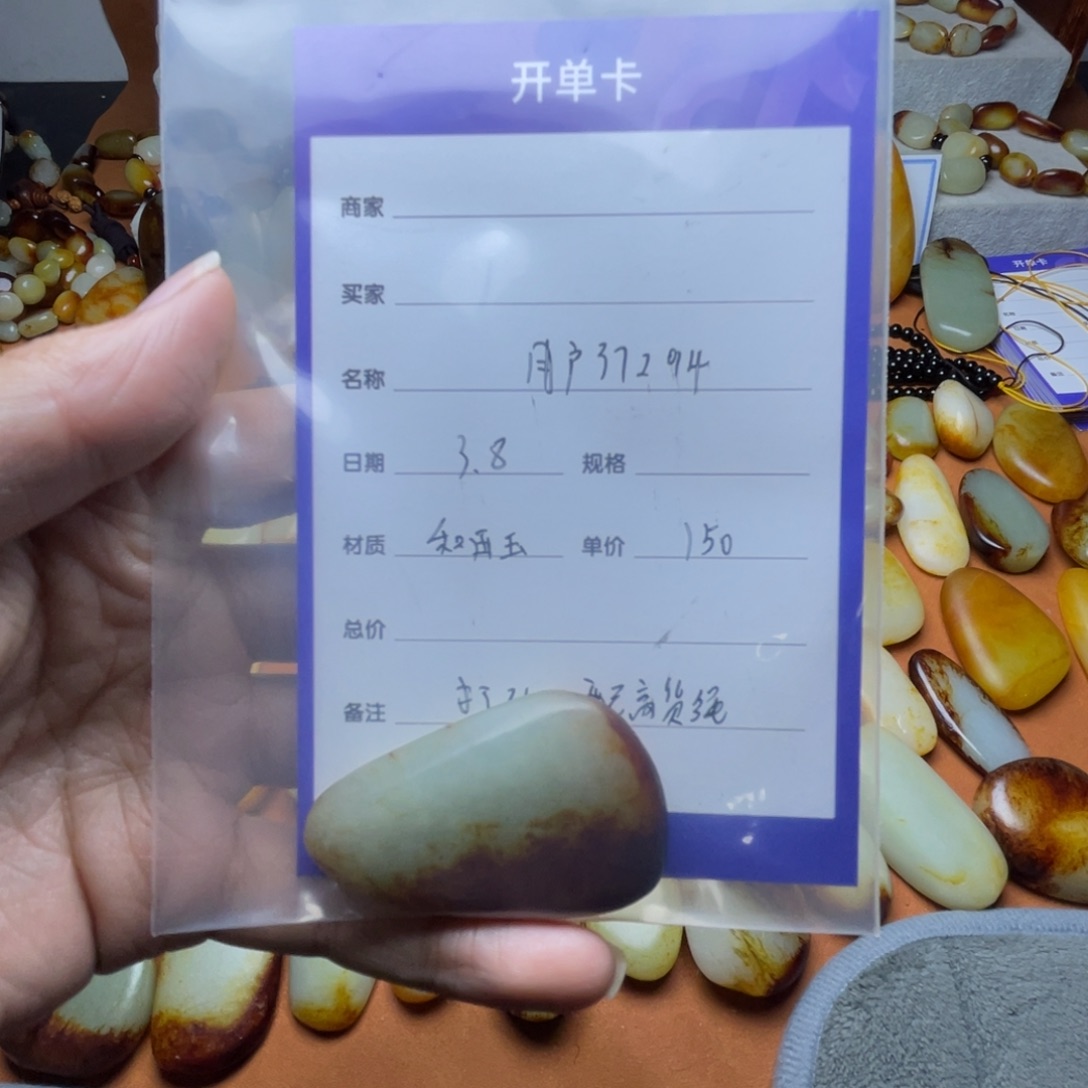 开单卡
商家
买家
名称 用户37294
日期 3.8 规格
材质 和西玉 单价 150
总价
备注 高货绳
开单卡